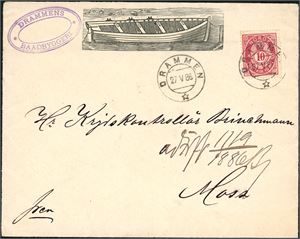 DRAMMENS
BAADBYGGERI
DRAMMEN
27 V 86
NORGE
10
DRAMMEN
Hr Krigskontrollör Brinchmann
11/9
1886
Moss